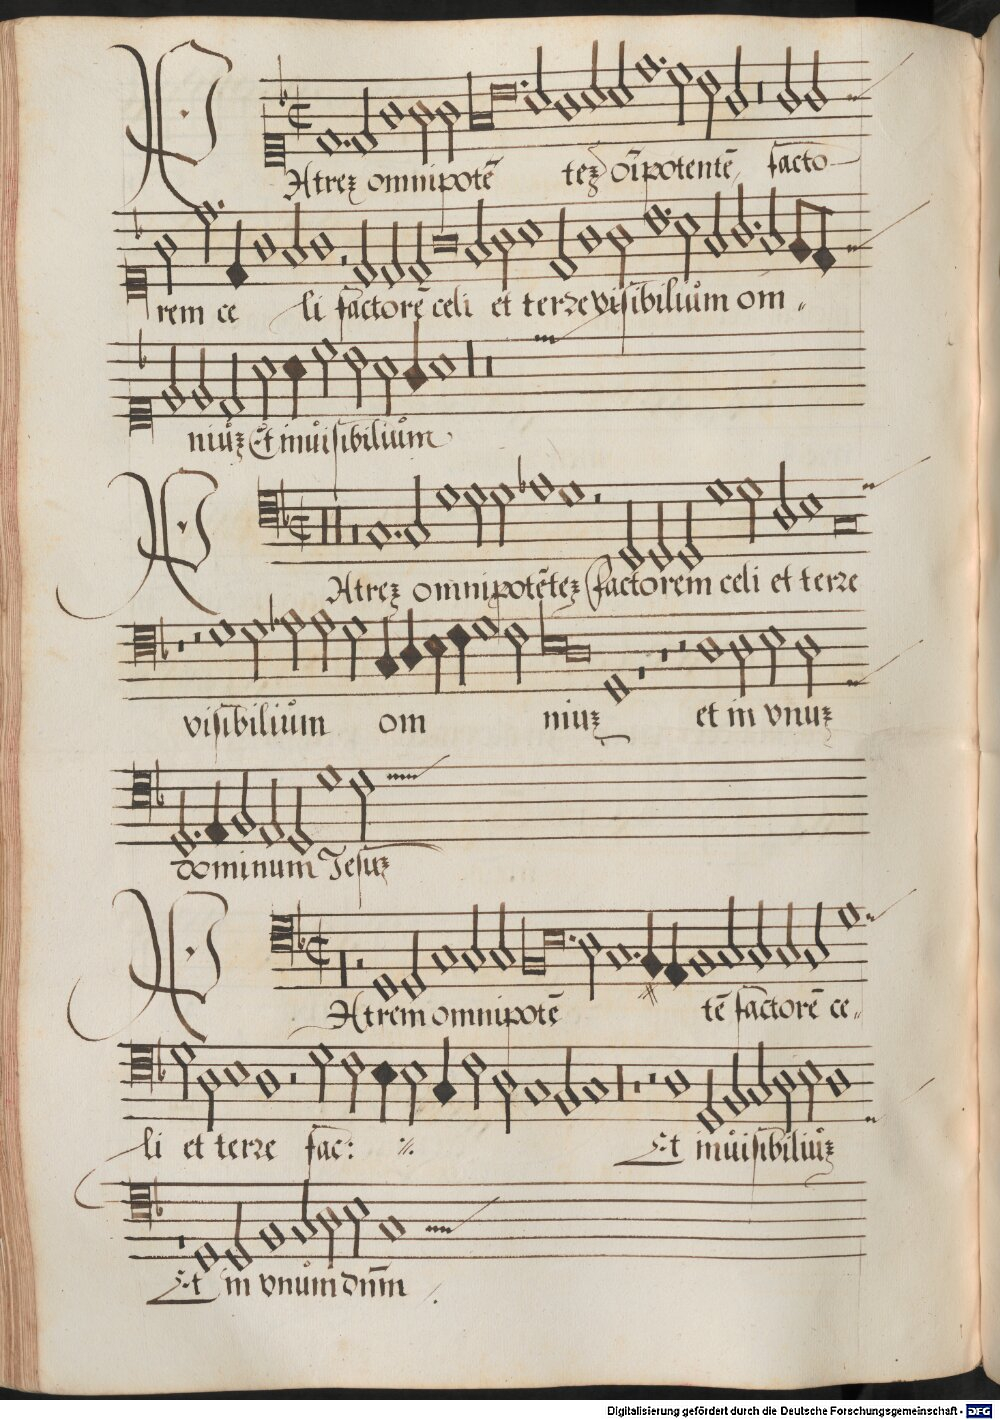 PAtreʒ omnipotē teʒ oīpotentē facto
rem ce li factorē celi et terre visibilium om
niuʒ Et inuisibilium
PAtreʒ omnipotēteʒ factorem celi et terre
visibilium om niuʒ et in vnuʒ
dominum Jesuʒ
PAtrem omnipotē tē factorē ce
li et terre fac: Et inuisibiliuʒ
Et in vnum dnm̄
Digitalisierung gefördert durch die Deutsche Forschungsgemeinschaft - DFG